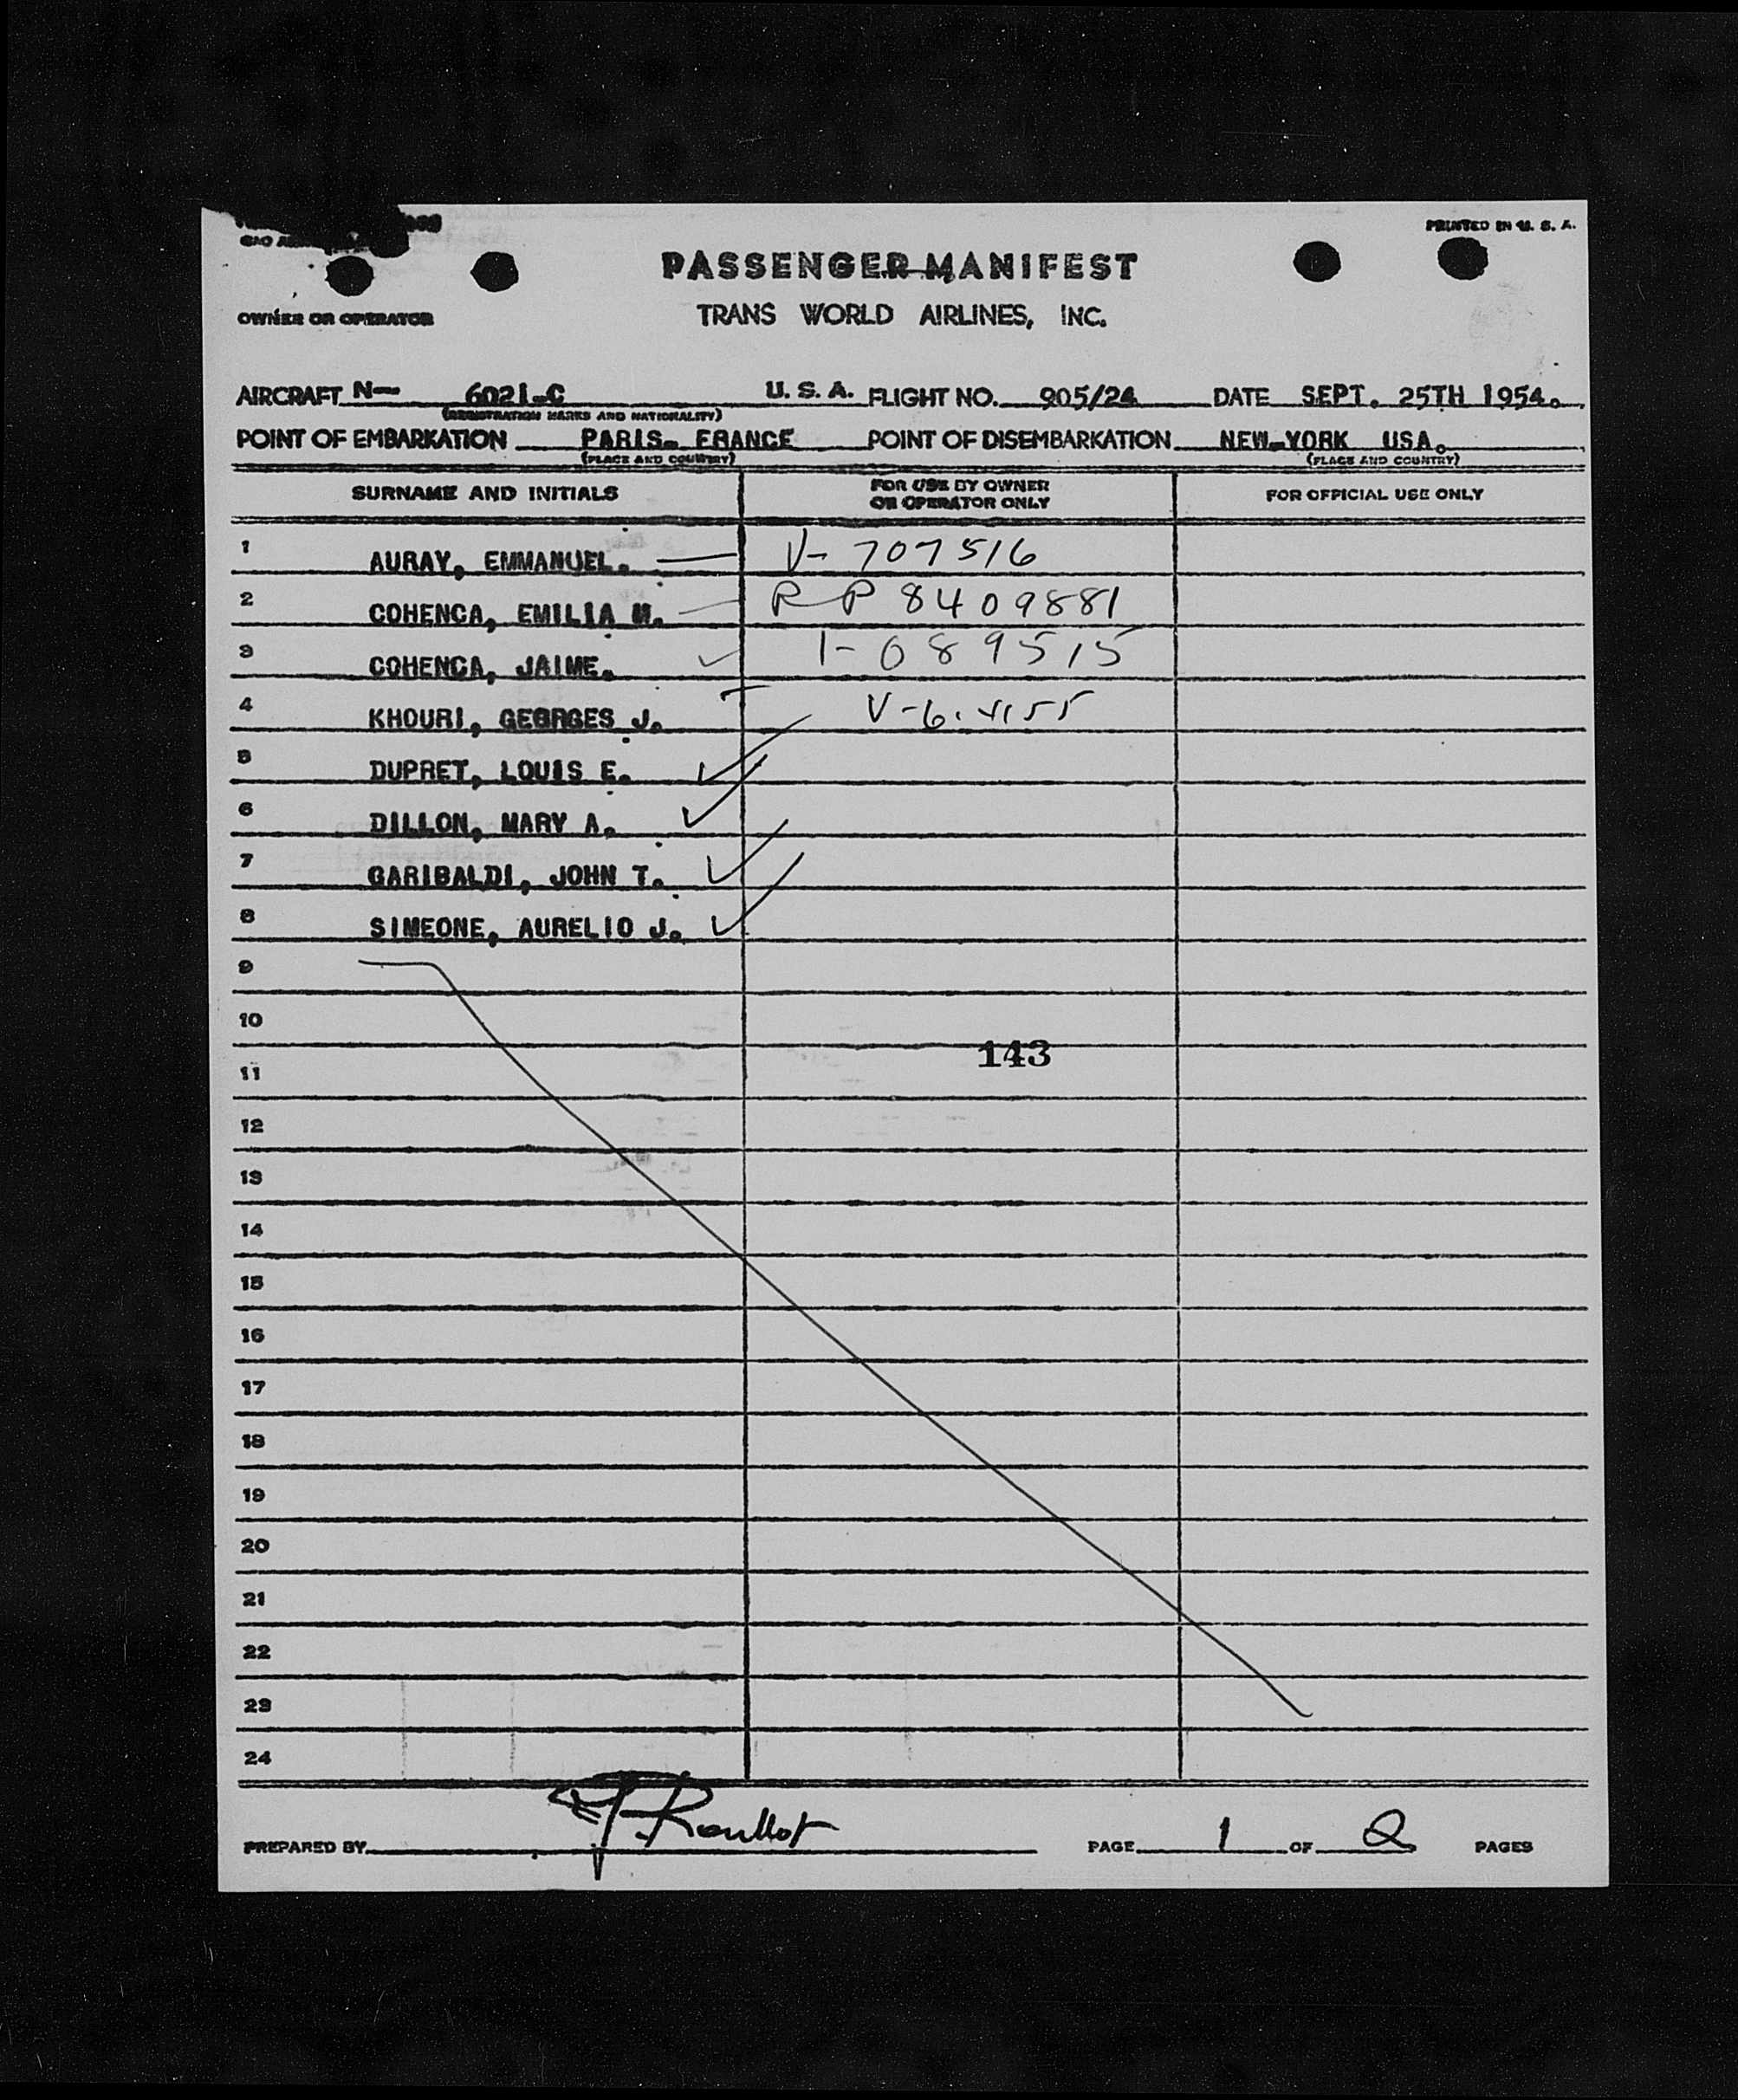 PRINTED IN U. S. A.
PASSENGER MANIFEST
OWNER OR OPERATOR TRANS WORLD AIRLINES, INC.
AIRCRAFT N— 6021-C U. S. A. FLIGHT NO. 905/24 DATE SEPT. 25TH 1954.
(REGISTRATION MARKS AND NATIONALITY)
POINT OF EMBARKATION PARIS- FRANCE POINT OF DISEMBARKATION NEW-YORK USA.
(PLACE AND COUNTRY) (PLACE AND COUNTRY)
SURNAME AND INITIALS FOR USE BY OWNER OR OPERATOR ONLY FOR OFFICIAL USE ONLY
1 AURAY, EMMANUEL. V- 707516
2 COHENCA, EMILIA M. RP 8409881
3 COHENCA, JAIME. I-089515
4 KHOURI, GEORGES J.
5 DUPRET, LOUIS E.
6 DILLON, MARY A.
7 GARIBALDI, JOHN T.
8 SIMEONE, AURELIO J.
9
10
143
11
12
13
14
15
16
17
18
19
20
21
22
23
24
PREPARED BY PAGE 1 OF 2 PAGES